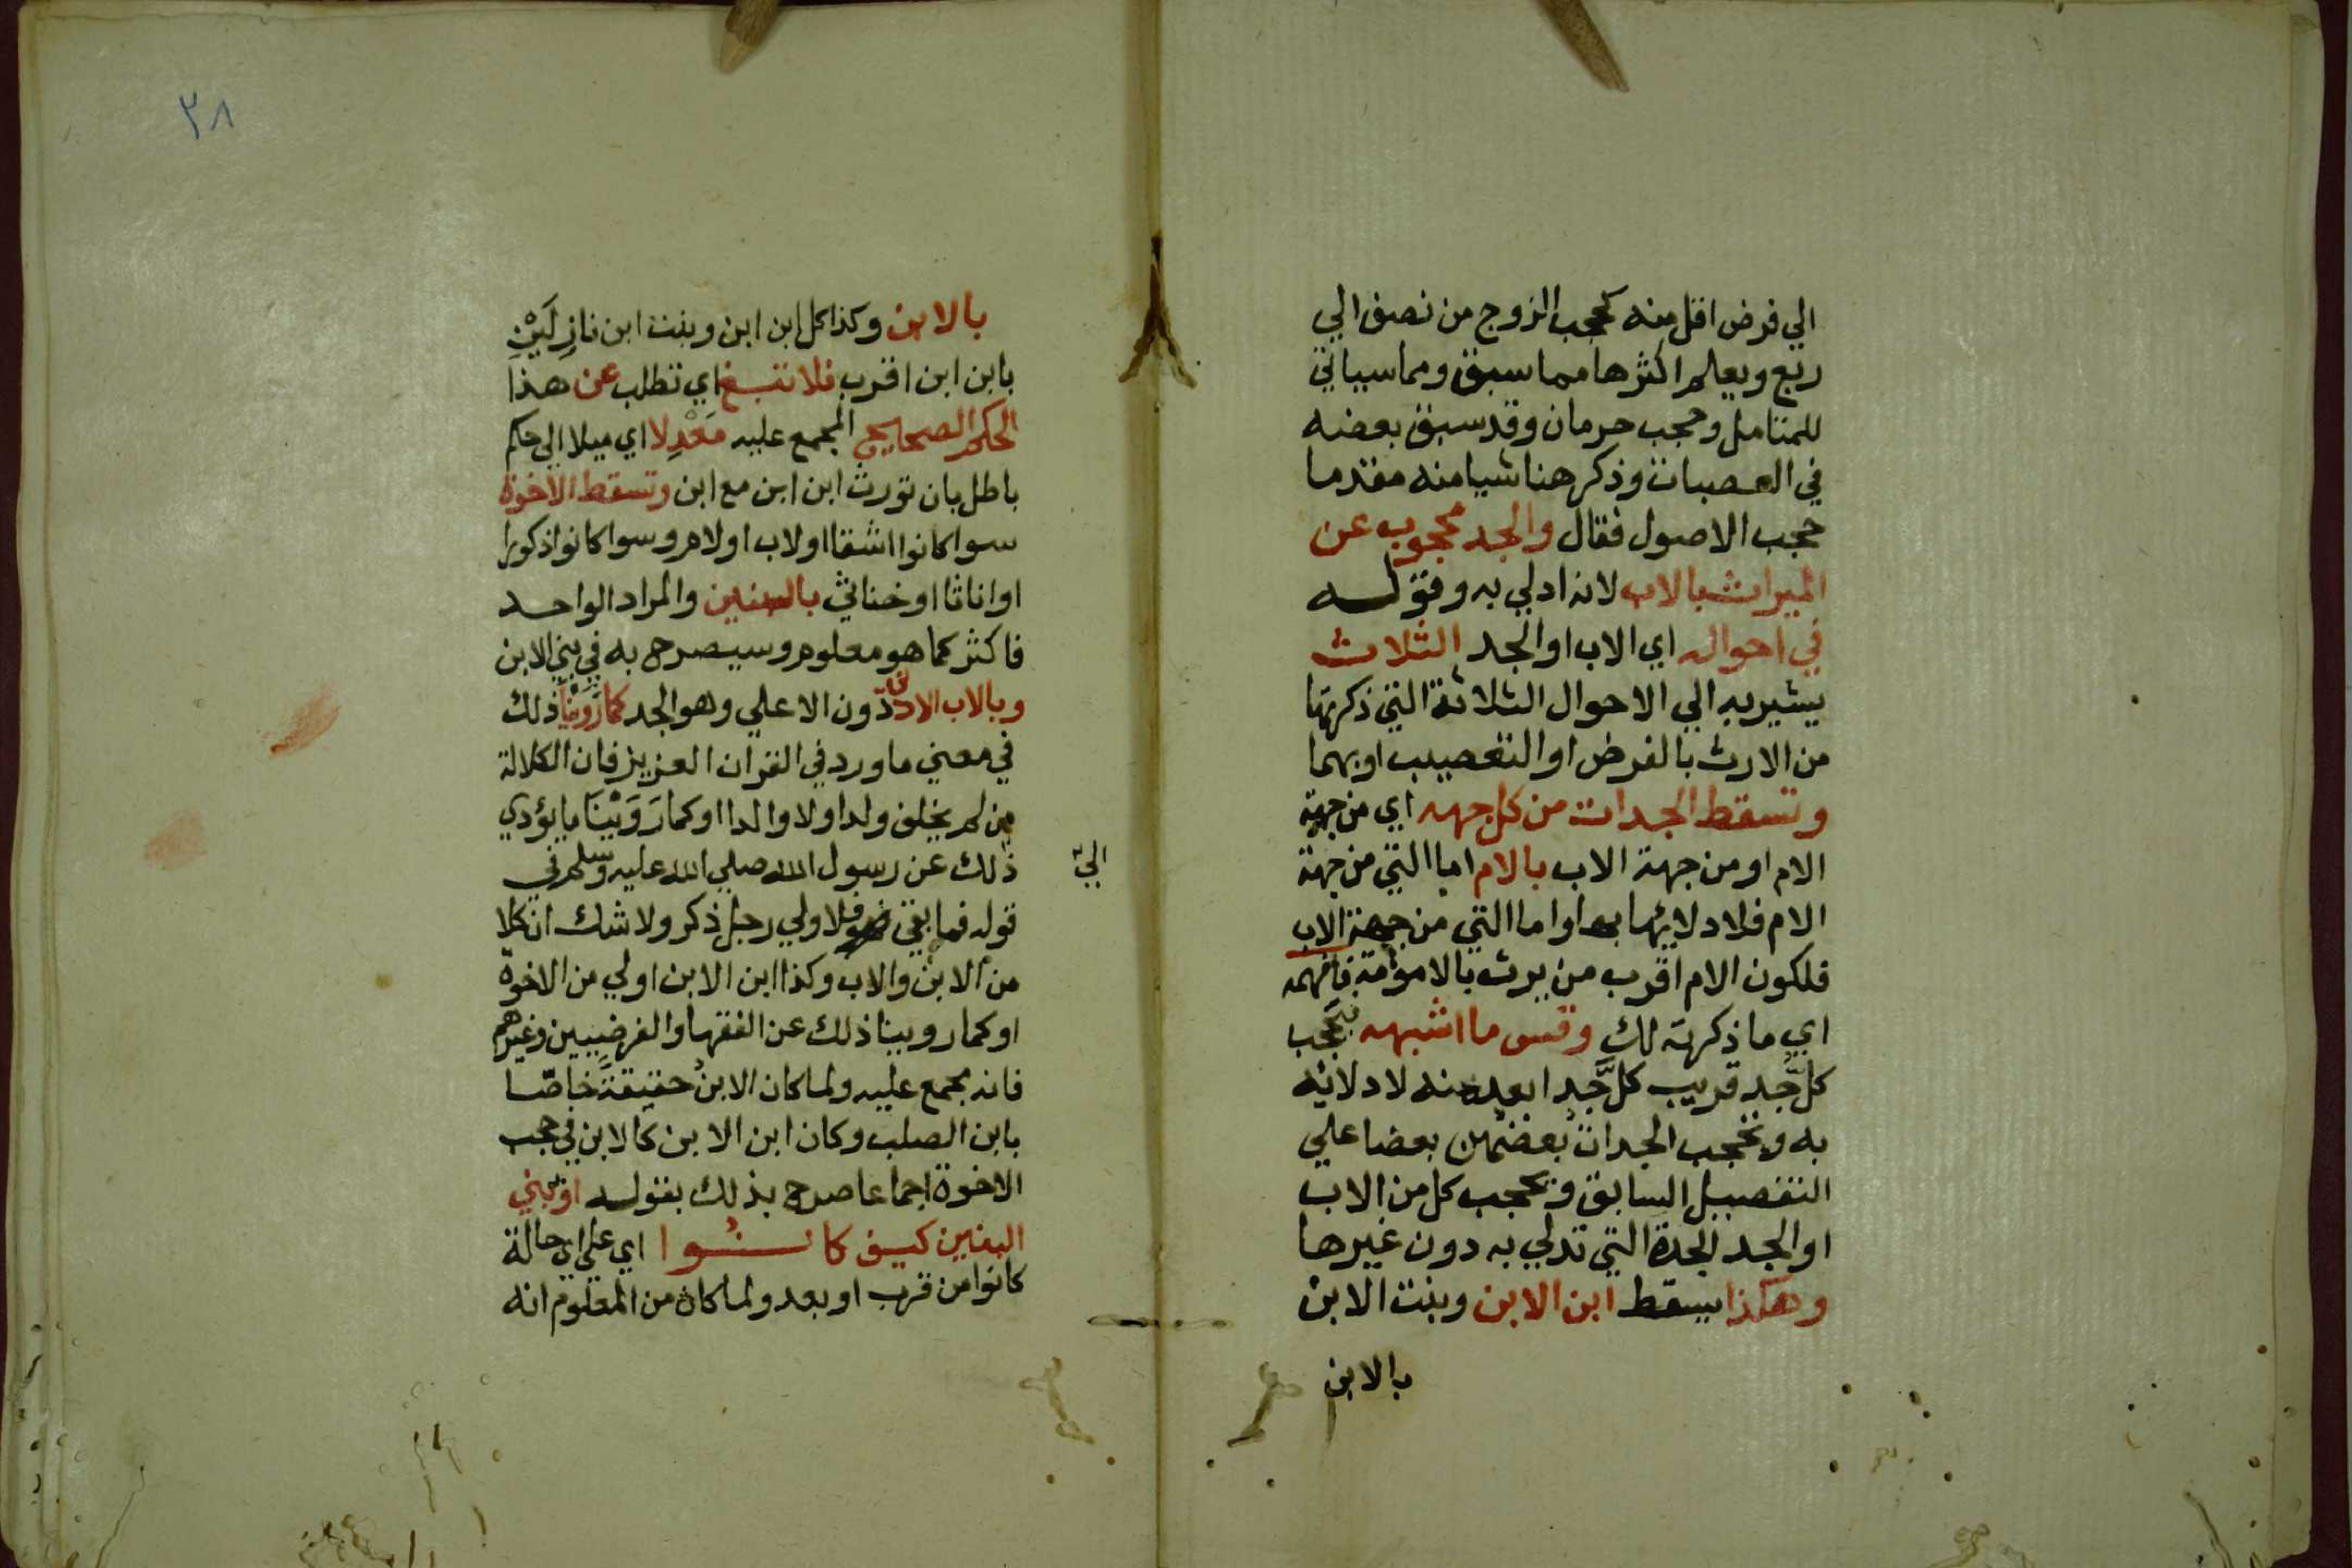 الي فرض اقل منه كحجب الزوج من نصف الي
ربع ويعلم اكثرها مما سبق ومما سياتي
للمتامل وحجب حرمان وقد سبق بعضه
في العصبات وذكر هنا شيا منه مقدما
حجب الاصول فقال والجد محجوب عن
الميراث بالاب لانه ادلي به وقوله
في احواله اي الاب او الجد الثلاث
يشير به الي الاحوال الثلاثة التي ذكرتها
من الارث بالفرض او التعصيب او بهما
وتسقط الجدات من كل جهه اي من جهة
الام او من جهة الاب بالام اما التي من جهة
الام فلادلائها بها واما التي من جهة الاب
فلكون الام اقرب من يرث بالامومة فافهمه
اي ما ذكرته لك وقس ما اشبهه فيحجب
كل جد قريب كل جد ابعد منه لادلائه
به وتحجب الجدات بعضهن بعضا علي
التفصيل السابق ويحجب كل من الاب
او الجد الجدة التي تدلي به دون غيرها
وهكذا يسقط ابن الابن وبنت الابن
بالابن
٣٨
بالابن وكذا كل ابن ابن وبنت ابن نازِلَيْنِ
بابن ابن اقرب فلا تبغ اي تطلب عن هذا
الحكم الصحيح المجمع عليه مَعْدِلا اي ميلا الي حكم
باطل بان تورث ابن ابن مع ابن وتسقط الاخوة
سوا كانوا اشقا او لاب او لام وسوا كانوا ذكورا
او اناثا او خناثي بالبنين والمراد الواحد
فاكثر كما هو معلوم وسيصرح به في بني الابن
وبالاب الادني دون الاعلي وهو الجد كما رَوَيْنَا ذلك
في معني ما ورد في القران العزيز فان الكلالة
من لم يخلف ولدا ولا والدا او كما رَوَيْنَا ما يؤدي
الي
ذلك عن رسول الله صلي الله عليه وسلم في
قوله فما بقي فلاولي رجل ذكر ولا شك ان كلا
من الابن والاب وكذا ابن الابن اولي من الاخوة
او كما روينا ذلك عن الفقها والفرضيين وغيرهم
فانه مجمع عليه ولما كان الابنُ حقيقةً خاصّا
بابن الصلب وكان ابن الابن كالابن في حجب
الاخوة اجماعا صرح بذلك بقوله او ببني
البنين كيف كانُوا اي علي اي حالة
كانوا من قرب او بعد ولما كان من المعلوم انه